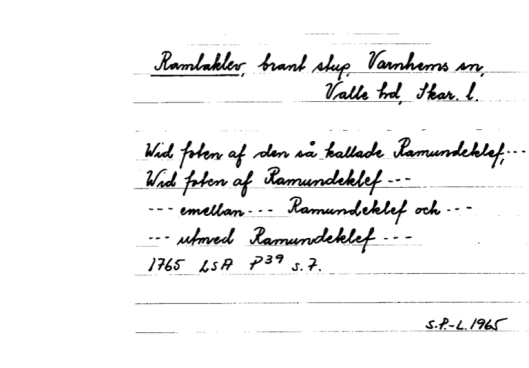 Ramlaklev, brant stup, Varnhems sn,
Valle hd, Skar. l.
Wid foten af den så kallade Ramundeklef,---
Wid foten af Ramundeklef ---
--- emellan --- Ramundeklef och ---
--- utmed Ramundeklef ---
1765 LSA P39 s.7.
S.P.-L. 1965